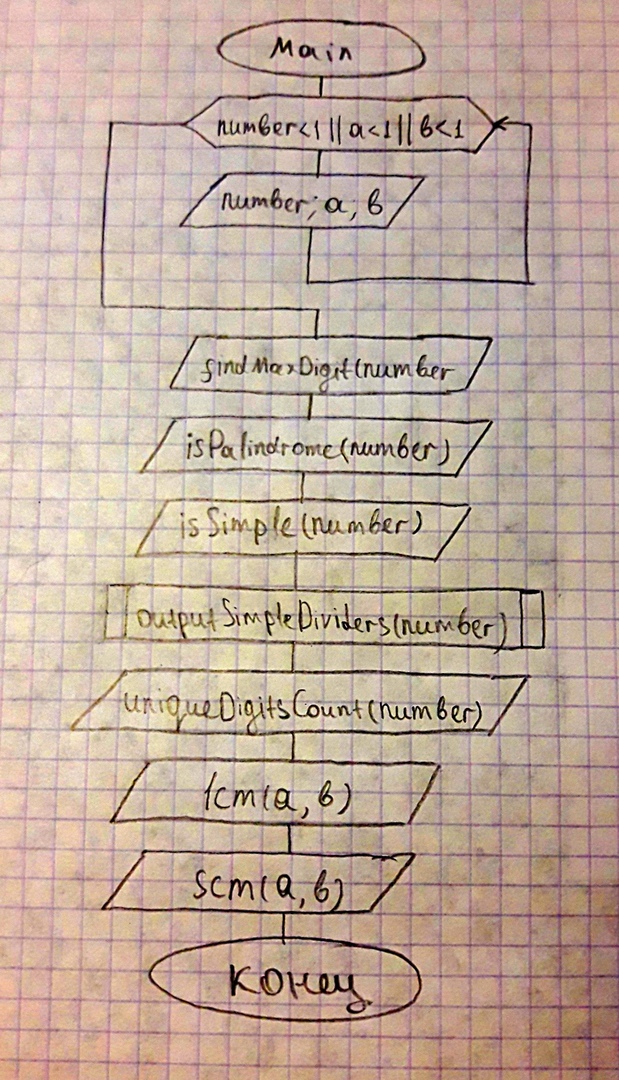 Main
number<1 || a<1 || b<1
number; a; b
findMaxDigit(number
isPalindrome(number)
isSimple(number)
outputSimpleDividers(number)
uniqueDigitsCount(number)
lcm(a, b)
scm(a, b)
Конец